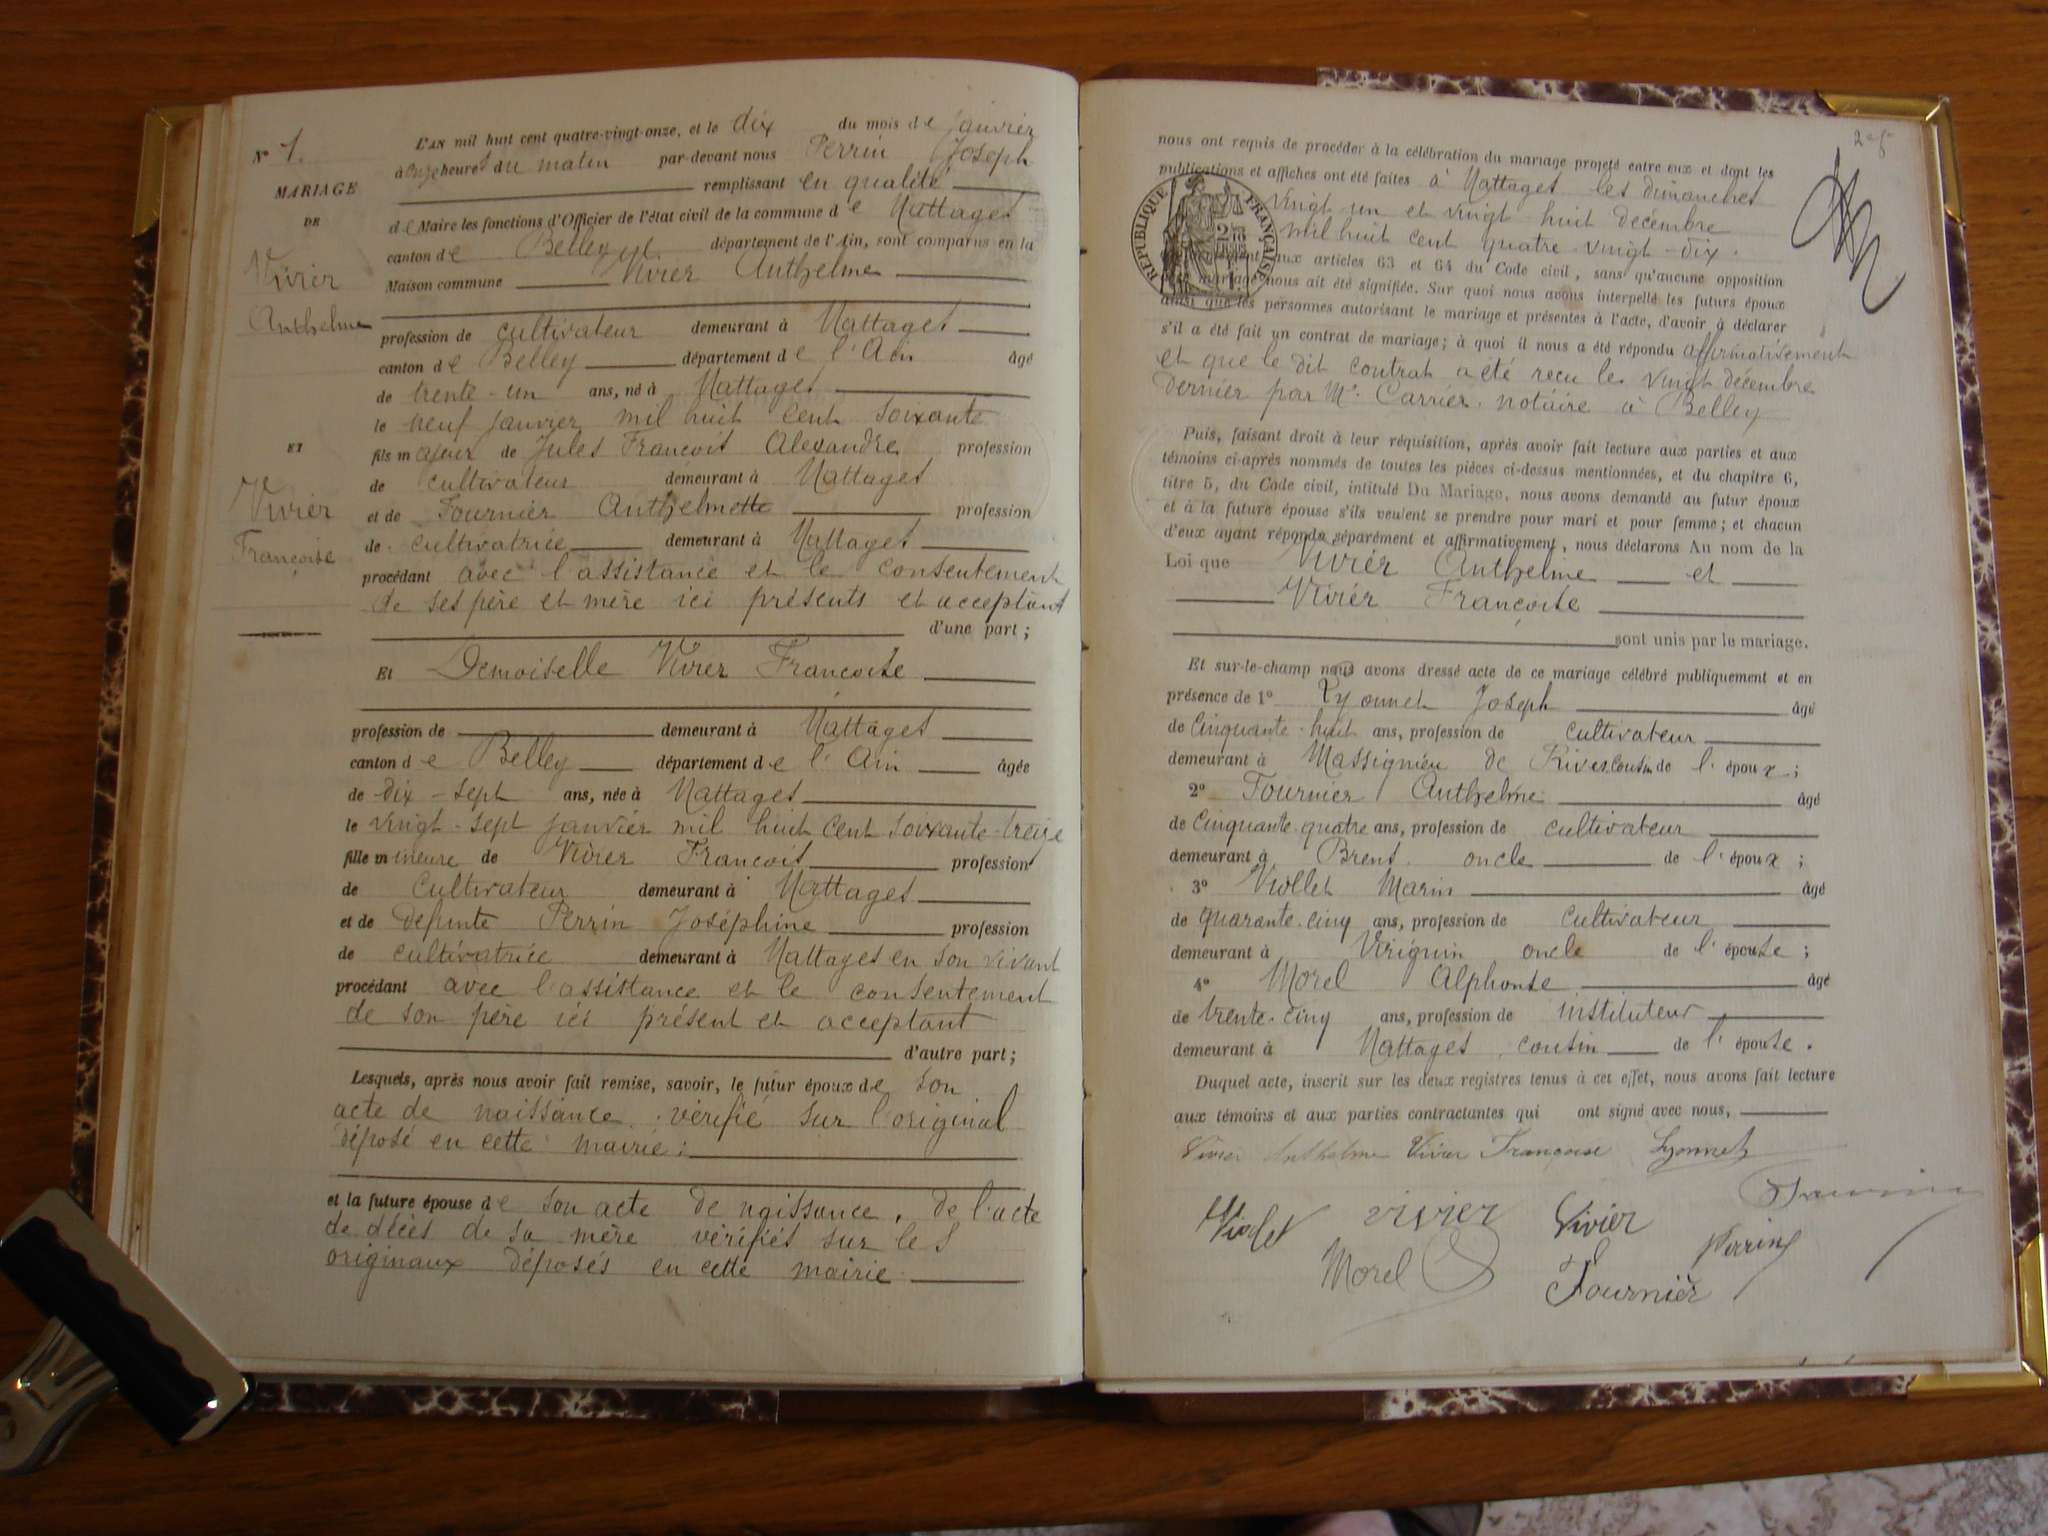 N° 1.
MARIAGE
DE
Vivier
Anthelme
ET
Vivier
Françoise
L'AN mil huit cent quatre-vingt-onze, et le dix du mois de janvier
à onze heures du matin par-devant nous Perrin Joseph
remplissant en qualité
de Maire les fonctions d'Officier de l'état civil de la commune de Nattages
canton de Belley département de l'Ain, sont comparus en la
Maison commune Vivier Anthelme
profession de cultivateur demeurant à Nattages
canton de Belley département de l'Ain âgé
de trente-un ans, né à Nattages
le neuf janvier mil huit cent soixante
fils majeur de Jules François Alexandre profession
de cultivateur demeurant à Nattages
et de Fournier Anthelmette profession
de cultivatrice demeurant à Nattages
procédant avec l'assistance et le consentement
de ses père et mère ici présents et acceptant
d'une part ;
Et Demoiselle Vivier Francoise
profession de demeurant à Nattages
canton de Belley département de l'Ain âgée
de dix-sept ans, née à Nattages
le vingt-sept janvier mil huit cent soixante-treize
fille mineure de Vivier Francois profession
de cultivateur demeurant à Nattages
et de defunte Perrin Joséphine profession
de cultivatrice demeurant à Nattages en son vivant
procédant avec l'assistance et le consentement
de son père ici présent et acceptant
d'autre part ;
Lesquels, après nous avoir fait remise, savoir, le futur époux de son
acte de naissance vérifié sur l'original
déposé en cette mairie ;
et la future épouse de son acte de naissance, de l'acte
de décès de sa mère vérifiés sur les
originaux déposés en cette mairie
nous ont requis de procéder à la célébration du mariage projeté entre eux et dont les
publications et affiches ont été faites à Nattages les dimanches
vingt un et vingt-huit décembre
mil huit cent quatre-vingt-dix.
RÉPUBLIQUE FRANÇAISE
aux articles 63 et 64 du Code civil, sans qu'aucune opposition
mariage nous ait été signifiée. Sur quoi nous avons interpellé les futurs époux
ainsi que les personnes autorisant le mariage et présentes à l'acte, d'avoir à déclarer
s'il a été fait un contrat de mariage ; à quoi il nous a été répondu affirmativement
et que le dit contrat a été recu le vingt décembre
dernier par Me Carrier notaire à Belley
Puis, faisant droit à leur réquisition, après avoir fait lecture aux parties et aux
témoins ci-après nommés de toutes les pièces ci-dessus mentionnées, et du chapitre 6,
titre 5, du Code civil, intitulé Du Mariage, nous avons demandé au futur époux
et à la future épouse s'ils veulent se prendre pour mari et pour femme ; et chacun
d'eux ayant répondu séparément et affirmativement, nous déclarons Au nom de la
Loi que Vivier Anthelme et
Vivier Francoise
sont unis par le mariage.
Et sur-le-champ nous avons dressé acte de ce mariage célébré publiquement et en
présence de 1° Lyonnet Joseph âgé
de cinquante-huit ans, profession de cultivateur
demeurant à Massignieu de Rives cousin de l'époux ;
2° Fournier Anthelme âgé
de cinquante-quatre ans, profession de cultivateur
demeurant à Brens oncle de l'époux ;
3° Viollet Marin âgé
de quarante-cinq ans, profession de cultivateur
demeurant à Virignin oncle de l'épouse ;
4° Morel Alphonse âgé
de trente-cinq ans, profession de instituteur
demeurant à Nattages, cousin de l'épouse.
Duquel acte, inscrit sur les deux registres tenus à cet effet, nous avons fait lecture
aux témoins et aux parties contractantes qui ont signé avec nous,
Vivier Anthelme Vivier Françoise Lyonnet
Violet vivier Vivier Perrin
Morel Fournier